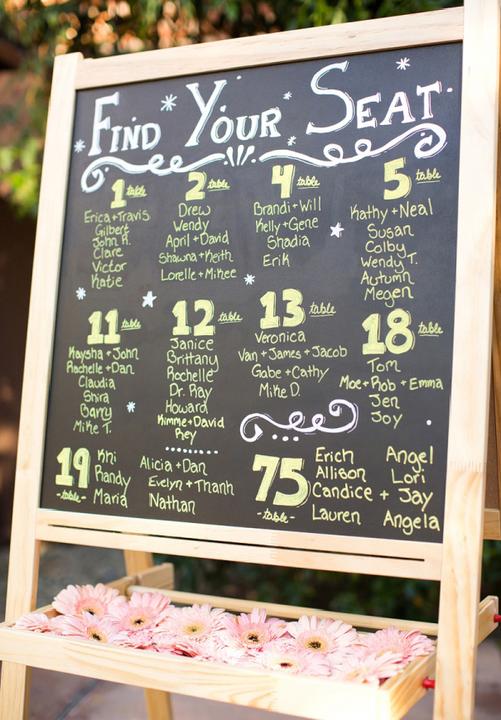 FIND YOUR SEAT
1 table
Erica + Travis
Gilbert
John R.
Clare
Victor
Katie
2 table
Drew
Wendy
April + David
Shawna + Keith
Lorelle + Mikee
4 table
Brandi + Will
Kelly + Gene
Shadia
Erik
5 table
Kathy + Neal
Susan
Colby
Wendy T.
Autumn
Megen
11 table
Kaysha + John
Rachelle + Dan
Claudia
Shira
Barry
Mike T.
12 table
Janice
Brittany
Rochelle
Dr. Ray
Howard
Kimme + David
Rey
13 table
Veronica
Van + James + Jacob
Gabe + Cathy
Mike D.
18 table
Tom
Moe + Rob + Emma
Jen
Joy
19 - table -
Khi
Randy
Maria
Alicia + Dan
Evelyn + Thanh
Nathan
75 - table -
Erich Angel
Allison Lori
Candice + Jay
Lauren Angela